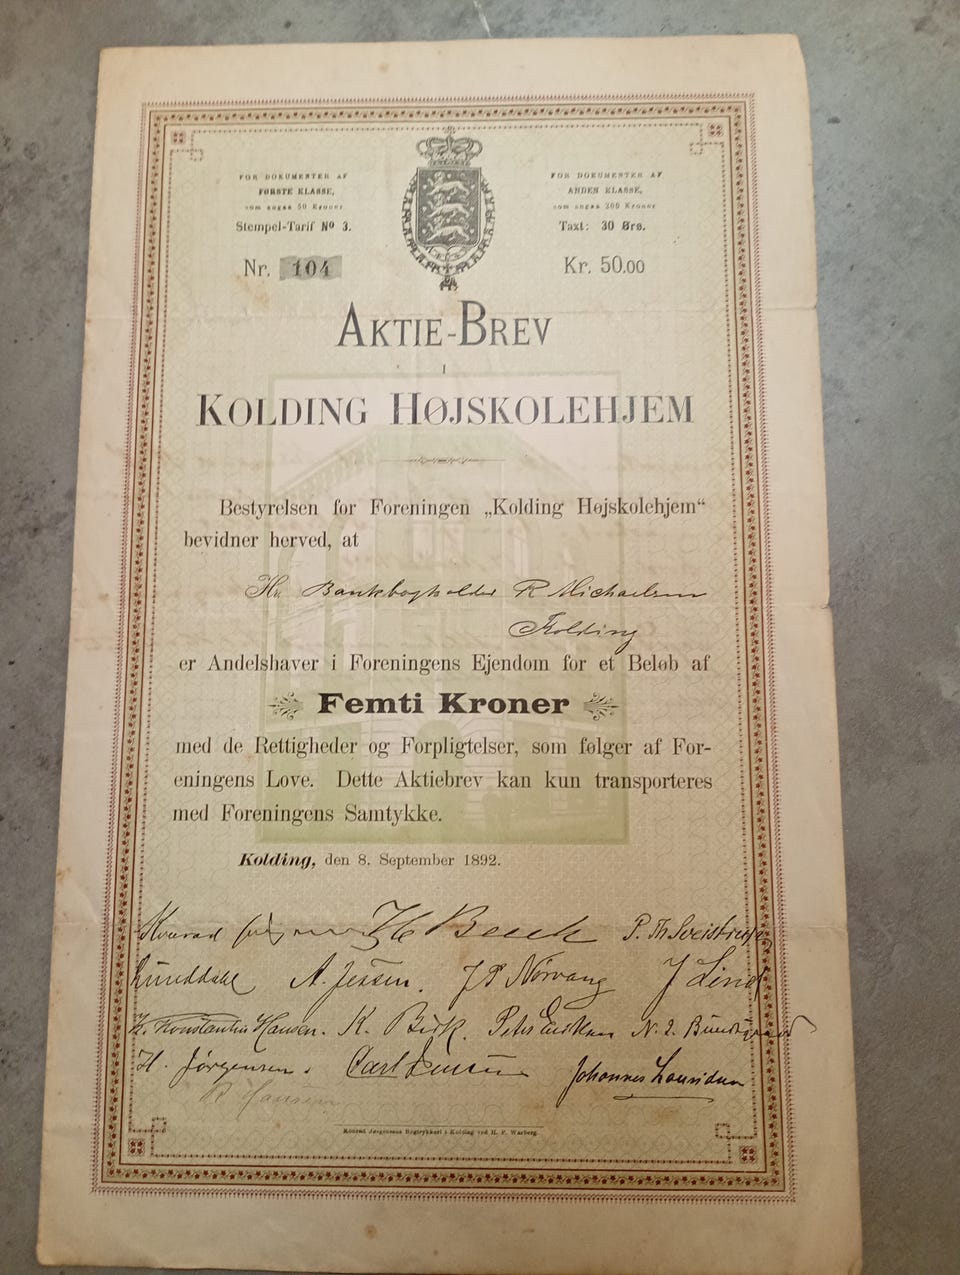 FOR DOKUMENTER AF
FØRSTE KLASSE,
som angaa 50 Kroner
Stempel-Tarif Nº 3.
FOR DOKUMENTER AF
ANDEN KLASSE,
som angaa 200 Kroner
Taxt: 30 Øre.
Nr. 104
Kr. 50.00
AKTIE-BREV
I
KOLDING HØJSKOLEHJEM
Bestyrelsen for Foreningen „Kolding Højskolehjem“
bevidner herved, at
Hr. Bankbogholder R Michaelsen
Kolding
er Andelshaver i Foreningens Ejendom for et Beløb af
Femti Kroner
med de Rettigheder og Forpligtelser, som følger af For-
eningens Love. Dette Aktiebrev kan kun transporteres
med Foreningens Samtykke.
Kolding, den 8. September 1892.
Konrad H Beck P. Th. Sveistrup
Lunddahl A. Jessen. J P Nørvang J Lind
Konstantin Hansen. K. Birk. Peter N. J. Bundgaard
H. Jørgensen. Carl Johannes Lauridsen
R Hansen
Konrad Jørgensens Bogtrykkeri i Kolding ved H. F. Warberg.